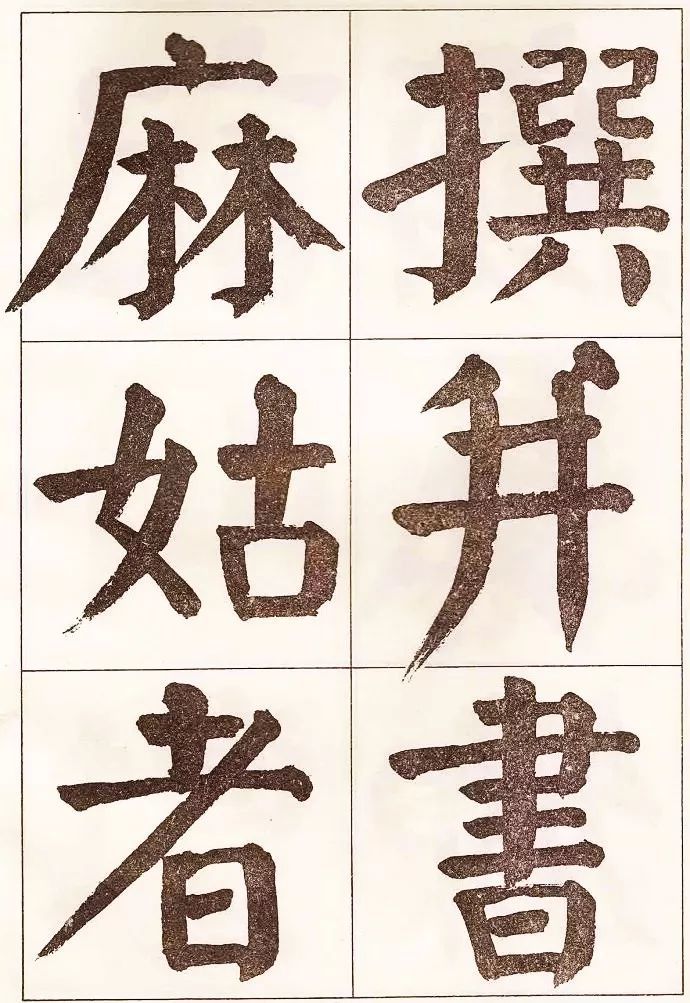 撰并書
麻姑者